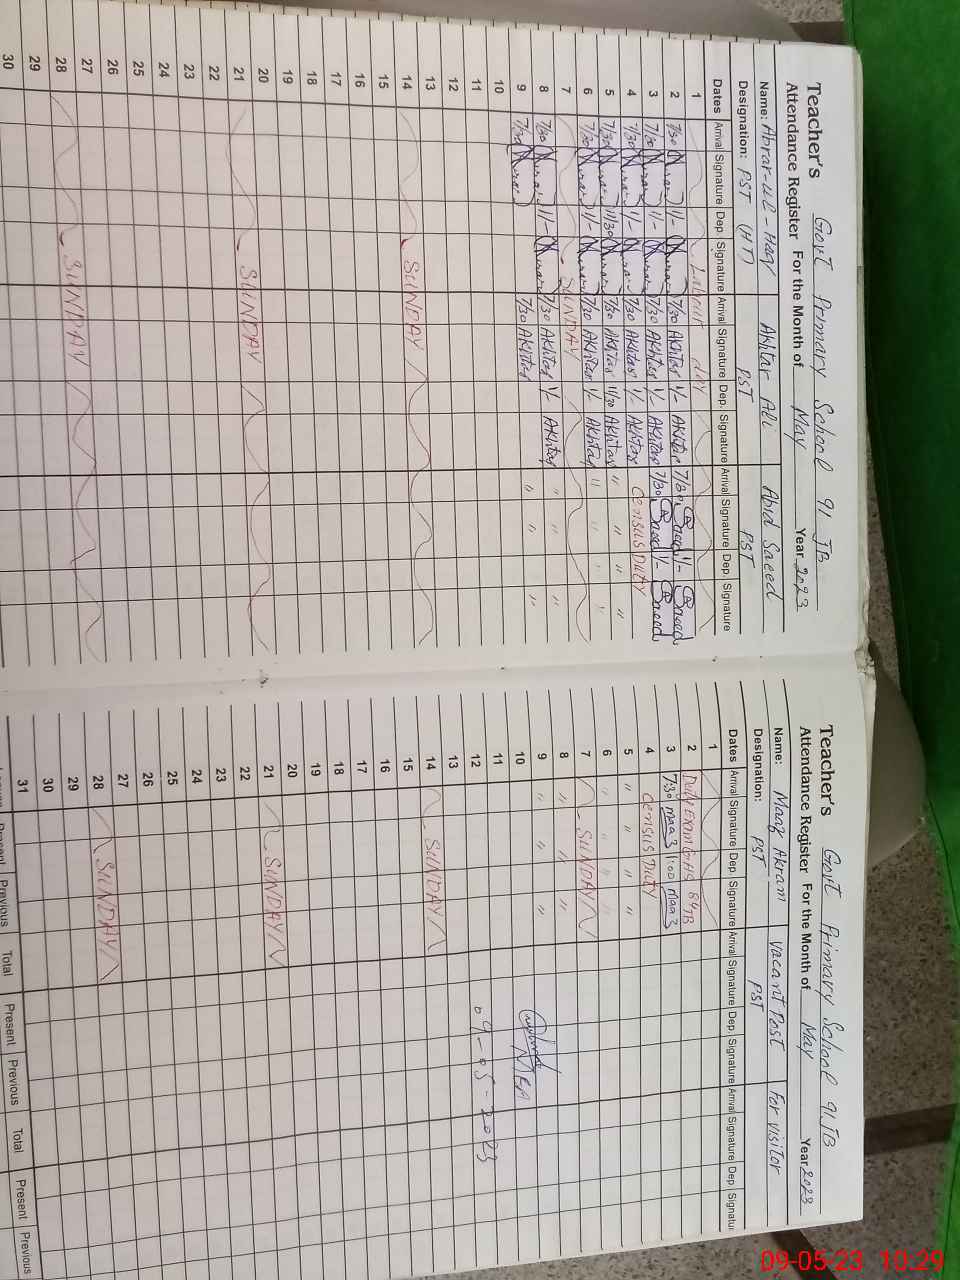 Teacher's Govt Primary School 91 JB
Attendance Register For the Month of May Year 2023
Name: Abrar-ul-Haq Akhtar Ali Abid Saeed
Designation: PST (HT) PST PST
Dates Arrival Signature Dep. Signature Arrival Signature Dep. Signature Arrival Signature Dep. Signature
1 Labour day
2 7/30 1/- 7/30 Akhtar 1/- Akhtar 7/30 Saeed 1/- Saeed
3 7/30 1/- 7/30 Akhtar 1/- Akhtar 7/30 Saeed 1/- Saeed
4 7/30 1/- 7/30 Akhtar 1/- Akhtar Census Duty
5 7/30 11/30 7/30 Akhtar 11/30 Akhtar " "
6 7/30 1/- 7/30 Akhtar 1/- Akhtar " "
7 SUNDAY
8 7/30 1/- 7/30 Akhtar 1/- Akhtar " " "
9 7/30 7/30 Akhtar " " "
10
11
12
13
14 SUNDAY
15
16
17
18
19
20
21 SUNDAY
22
23
24
25
26
27
28 SUNDAY
29
30
Teacher's Govt Primary School 91 JB
Attendance Register For the Month of May Year 2023
Name: Akram vacant Post For visitor
Designation: PST PST
Dates Arrival Signature Dep. Signature Arrival Signature Dep. Signature Arrival Signature Dep. Signature
1
2 Duty Exam GHS 84 JB
3 7:30 1:00
4 Census Duty
5 " " " "
6 " " " "
7 SUNDAY
8 " " "
9 " " " "
10 MEA
11
12 09-05-2023
13
14 SUNDAY
15
16
17
18
19
20
21 SUNDAY
22
23
24
25
26
27
28 SUNDAY
29
30
31
Present Previous Total Present Previous Total Present Previous
09-05-23 10:29